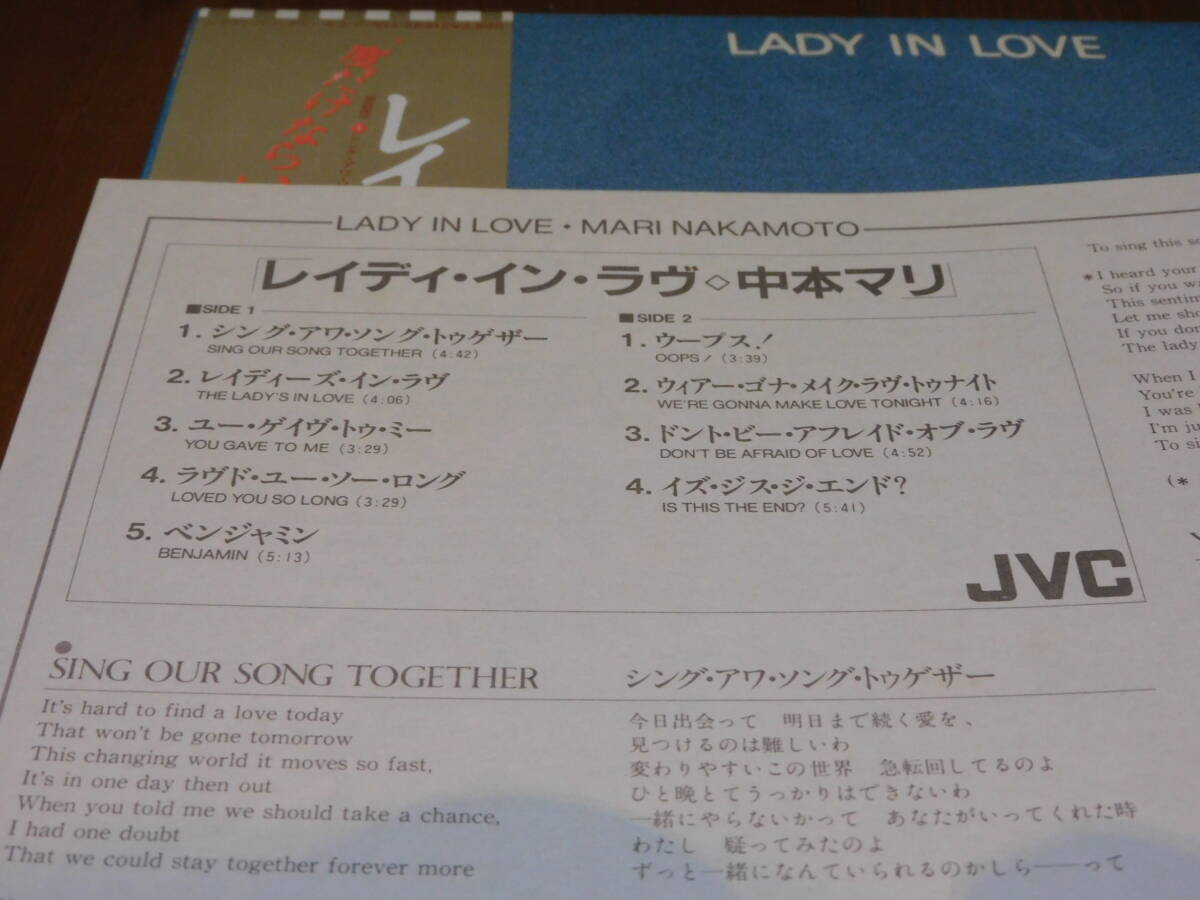 LADY IN LOVE
レイ
LADY IN LOVE・MARI NAKAMOTO
「レイディ・イン・ラヴ◇中本マリ」
■SIDE 1
1. シング・アワ・ソング・トゥゲザー
SING OUR SONG TOGETHER (4:42)
2. レイディーズ・イン・ラヴ
THE LADY'S IN LOVE (4:06)
3. ユー・ゲイヴ・トゥ・ミー
YOU GAVE TO ME (3:29)
4. ラヴド・ユー・ソー・ロング
LOVED YOU SO LONG (3:29)
5. ベンジャミン
BENJAMIN (5:13)
■SIDE 2
1. ウープス!
OOPS! (3:39)
2. ウィアー・ゴナ・メイク・ラヴ・トゥナイト
WE'RE GONNA MAKE LOVE TONIGHT (4:16)
3. ドント・ビー・アフレイド・オブ・ラヴ
DON'T BE AFRAID OF LOVE (4:52)
4. イズ・ジス・ジ・エンド?
IS THIS THE END? (5:41)
JVC
SING OUR SONG TOGETHER
It's hard to find a love today
That won't be gone tomorrow
This changing world it moves so fast,
It's in one day then out
When you told me we should take a chance,
I had one doubt
That we could stay together forever more
シング・アワ・ソング・トゥゲザー
今日出会って 明日まで続く愛を、
見つけるのは難しいわ
変わりやすいこの世界 急転回してるのよ
ひと晩とてうっかりはできないわ
一緒にやらないかって あなたがいってくれた時
わたし 疑ってみたのよ
ずっと一緒になんていられるのかしら――って
To sing this
*I heard your
So if you
This
Let me
If you
The lady
When I
You're
I was
I'm
To
(*